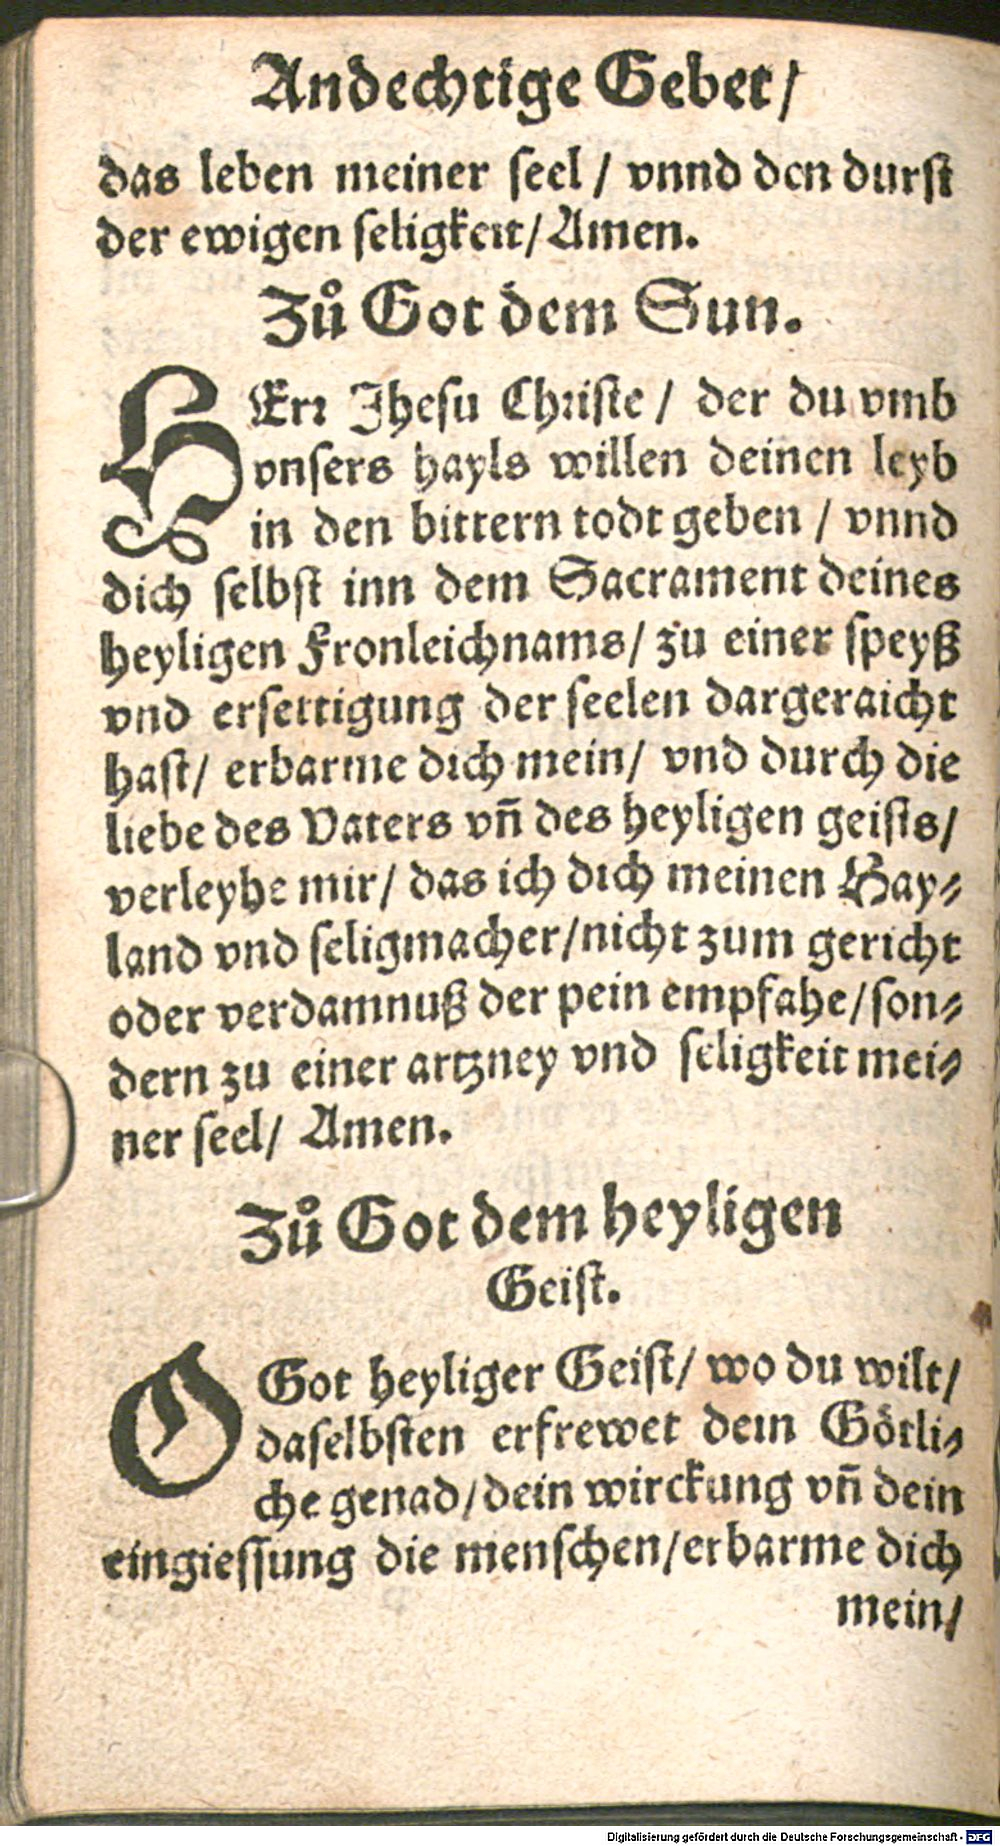 Andechtige Gebet/
das leben meiner seel / vnnd den durst
der ewigen seligkeit/ Amen.
Zů Got dem Sun.
HErr Jhesu Christe / der du vmb
vnsers hayls willen deinen leyb
in den bittern todt geben / vnnd
dich selbst inn dem Sacrament deines
heyligen Fronleichnams/ zů einer speyß
vnd ersettigung der seelen dargeraicht
hast/ erbarme dich mein/ vnd durch die
liebe des Vaters vñ des heyligen geists/
verleyhe mir/ das ich dich meinen Hay-
land vnd seligmacher/nicht zum gericht
oder verdamnuß der pein empfahe/son-
dern zu einer artzney vnd seligkeit mei-
ner seel/ Amen.
Zů Got dem heyligen
Geist.
O Got heyliger Geist/ wo du wilt/
daselbsten erfrewet dein Götli-
che genad/dein wirckung vñ dein
eingiessung die menschen/erbarme dich
mein/
Digitalisierung gefördert durch die Deutsche Forschungsgemeinschaft - DFG